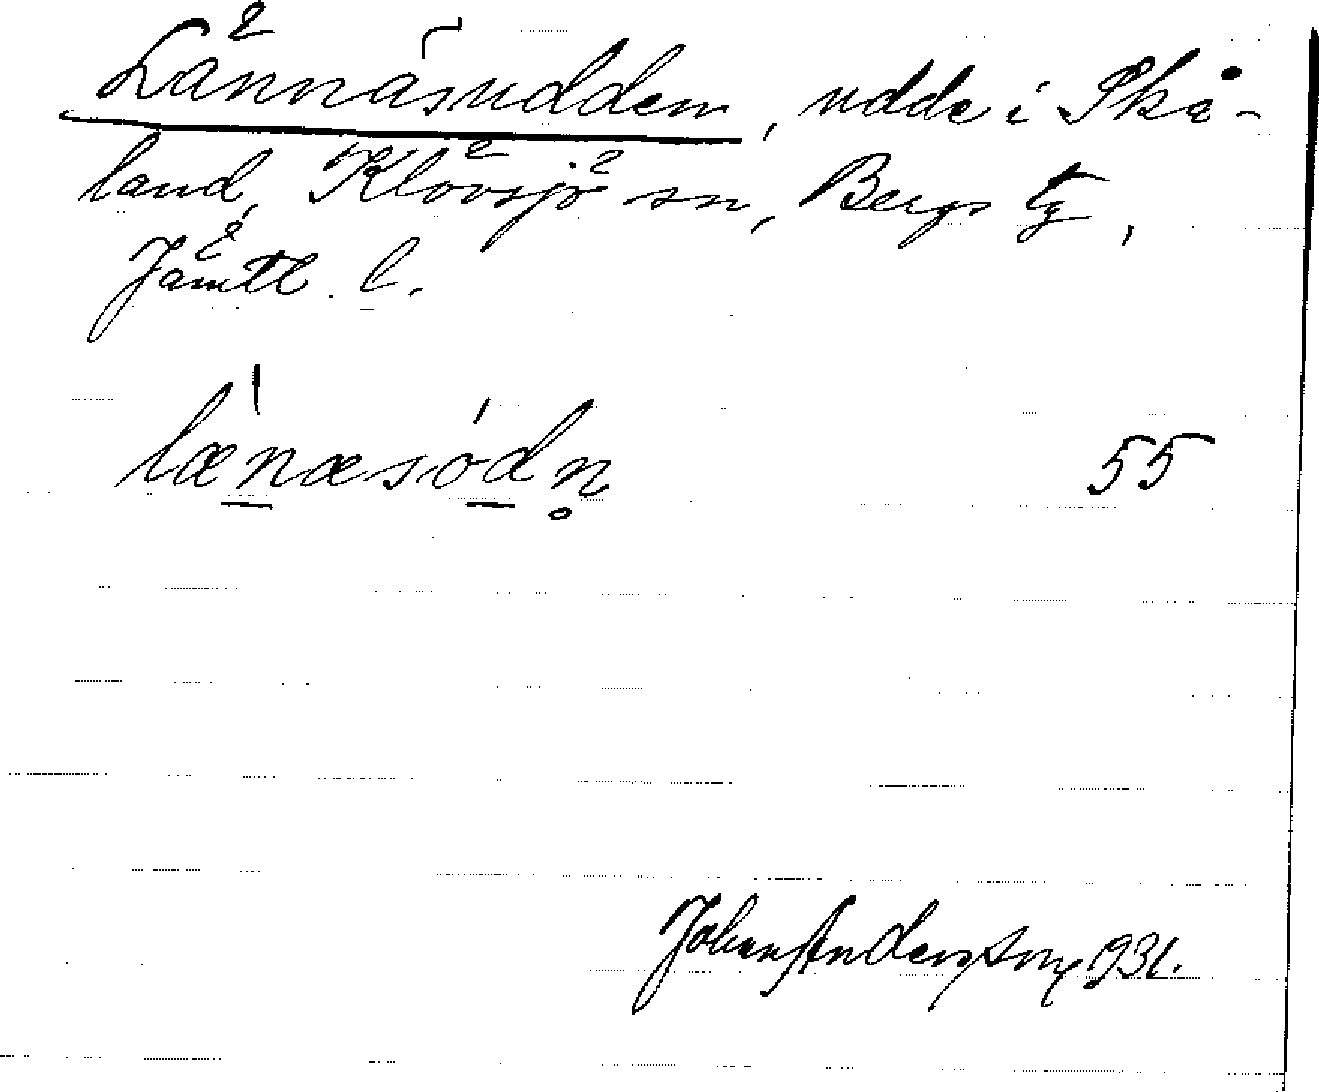 Lännäsudden, udde i Skå-
land, Klövsjö sn, Bergs tg,
Jämtl. l.
lænæsódn̥ 55
John Andersson, 1931.